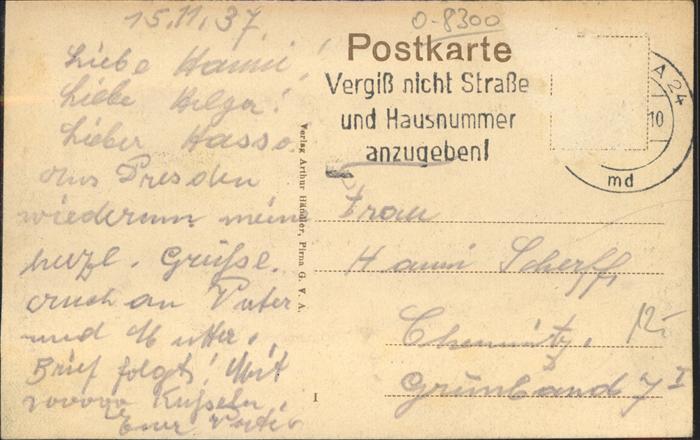 15.11.37.
Liebe Hanni!
Liebe Helga!
Lieber Hasso.
Aus Dresden
wiederum meine
herzl. Grüße.
auch an Vater
und Mutter.
Brief folgt! Mit
100000 Küssen,
Euer Vati
Verlag Arthur Händler, Pirna G. V. A.
0-8300
Postkarte
Vergiß nicht Straße
und Hausnummer
anzugeben!
A 24
10
md
Frau
Hanni Scherffi
Chemnitz.
12.-
I